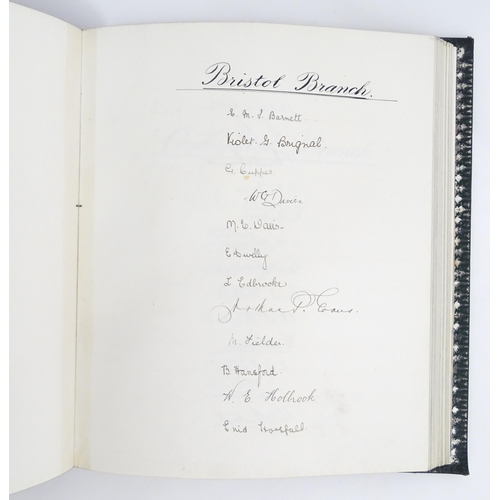 Bristol Branch.
E. M. I. Barnett
Violet. G. Brignal.
G. Cupper
W G Davies
M. E. Davis
E Dwelly
L. Edbrooke
Arthur P. Evans.
M. Fielder.
B. Hansford.
W. E Holbrook
Enid Horsfall